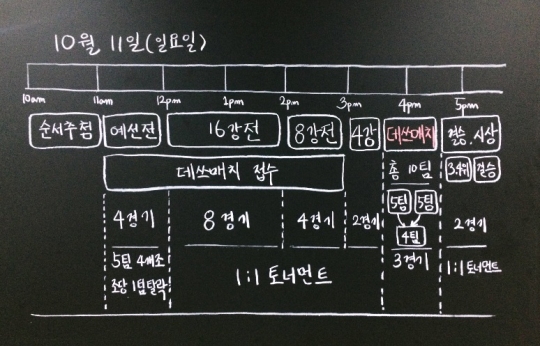 10월 11일(일요일)
10am 11am 12pm 1pm 2pm 3pm 4pm 5pm
순서추첨 예선전 16강전 8강전 4강 데쓰매치 결승.시상
데쓰매치 접수 총 10팀 3,4위 결승
5팀 5팀
4팀
4경기 8경기 4경기 2경기 3경기 2경기
5팀 4개조
조당 1팀탈락
1:1 토너먼트 1:1 토너먼트